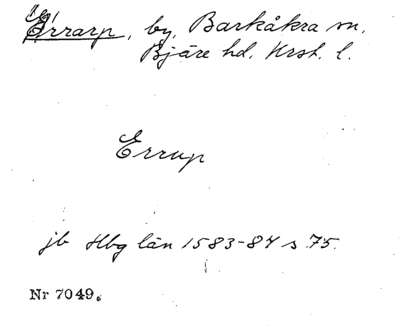 Errarp, by, Barkåkra sn,
Bjäre hd. Krst. l.
Errup
jb Hbg län 1583-84 s 75.
Nr 7049.